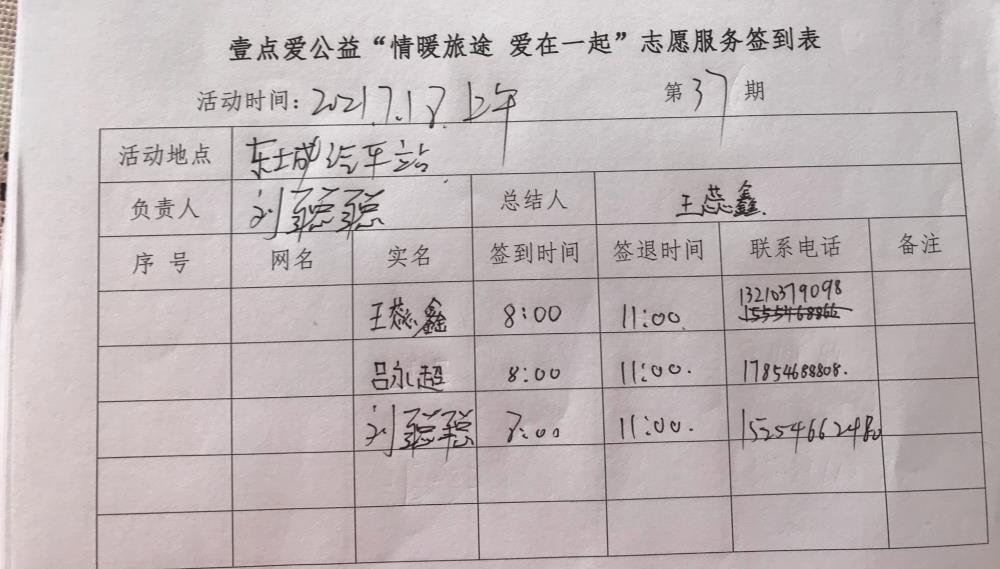 壹点爱公益“情暖旅途 爱在一起”志愿服务签到表
活动时间：2021.7.18.上午 第37期
活动地点 东城汽车站
负责人 刘聪聪 总结人 王蕊鑫
序号 网名 实名 签到时间 签退时间 联系电话 备注
王蕊鑫 8:00 11:00. 13210379098
吕永超 8:00 11:00. 17854688808.
刘聪聪 8:00 11:00. 15254662480